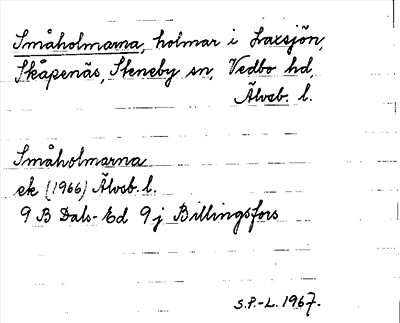 Småholmarna, holmar i Laxsjön,
Skåpenäs, Steneby sn, Vedbo hd,
Älvsb. l.
Småholmarna
ek (1966) Älvsb. l.
9 B Dals-Ed 9j Billingsfors
S.P.-L. 1967.